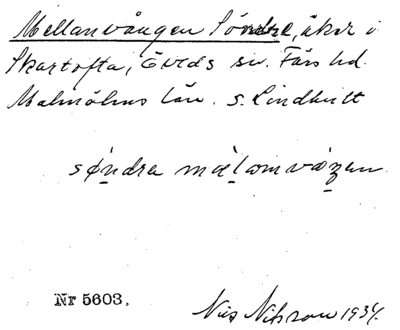 Mellanvången Söndre, åker i
Skartofta, Öveds sn. Färs hd.
Malmöhus län. S. Lindhult
søndra mælomvåzen
Nr 5603.
Nils Nilsson 1934.